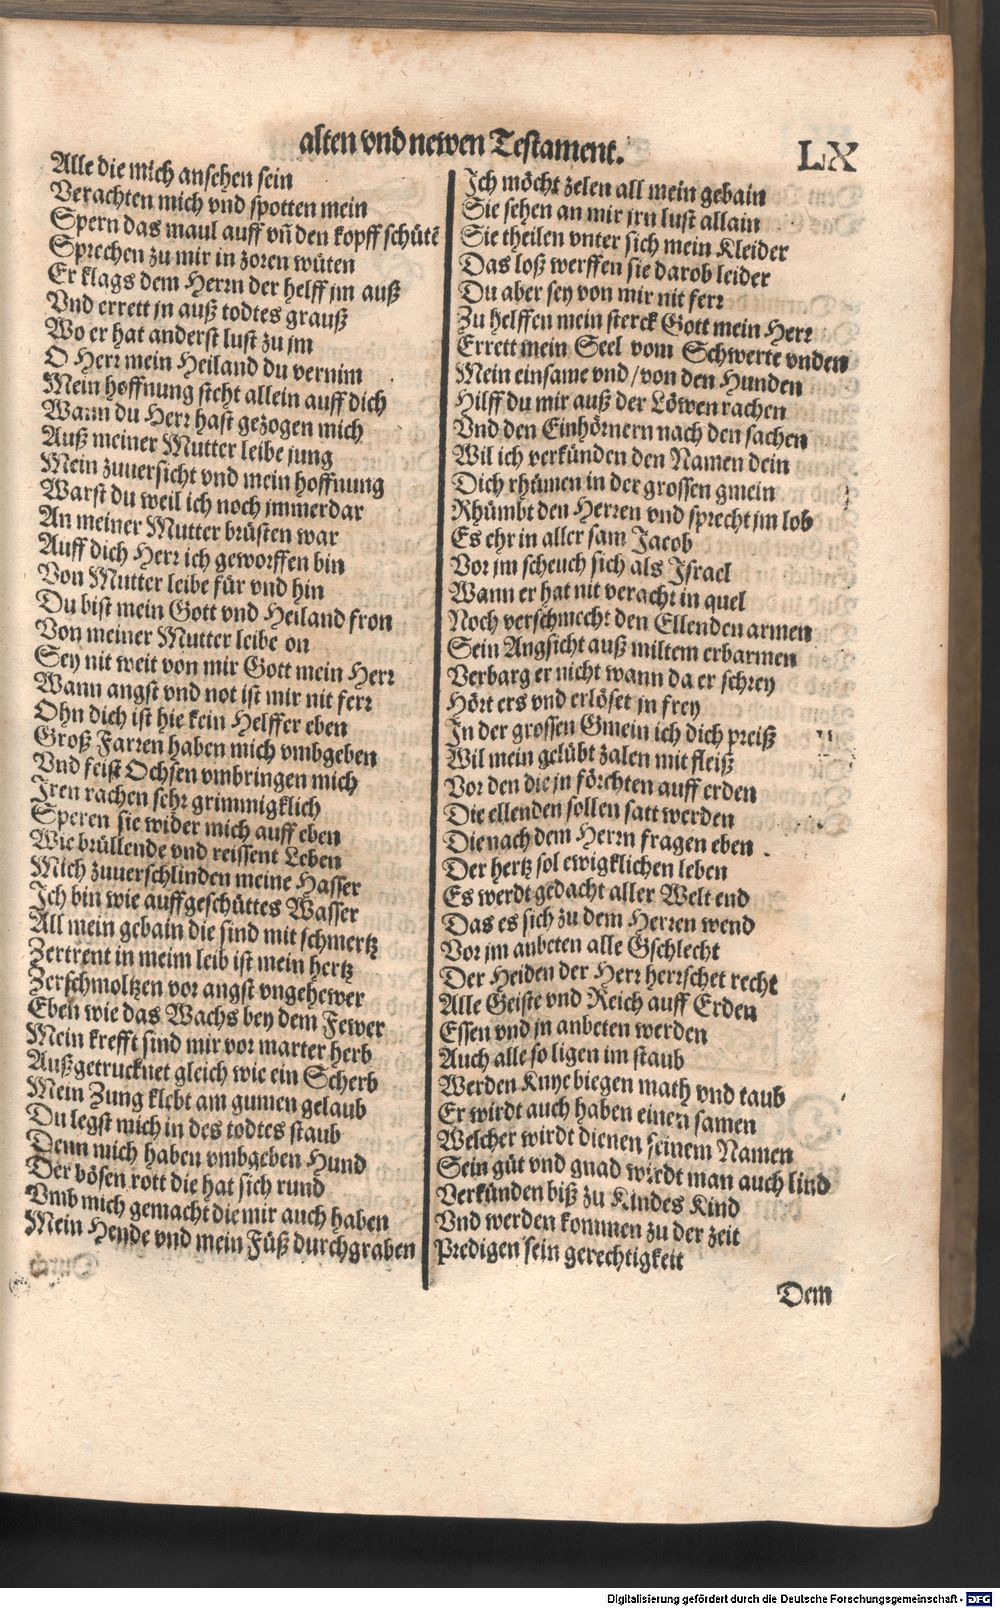 alten vnd newen Testament.
LX
Alle die mich ansehen sein
Verachten mich vnd spotten mein
Spern das maul auff vñ den kopff schütẽ
Sprechen zu mir in zoren wüten
Er klags dem Herrn der helff jm auß
Vnd errett jn auß todtes grauß
Wo er hat anderst lust zu jm
O Herr mein Heiland du vernim
Mein hoffnung steht allein auff dich
Wann du Herr hast gezogen mich
Auß meiner Mutter leibe jung
Mein zuuersicht vnd mein hoffnung
Warst du weil ich noch jmmerdar
An meiner Mutter brüsten war
Auff dich Herr ich geworffen bin
Von Mutter leibe für vnd hin
Du bist mein Gott vnd Heiland fron
Von meiner Mutter leibe on
Sey nit weit von mir Gott mein Herr
Wann angst vnd not ist mir nit ferr
Ohn dich ist hie kein Helffer eben
Groß Farren haben mich vmbgeben
Vnd feist Ochsen vmbringen mich
Iren rachen sehr grimmigklich
Speren sie wider mich auff eben
Wie brüllende vnd reissent Leben
Mich zuuerschlinden meine Hasser
Ich bin wie auffgeschüttes Wasser
All mein gebain die sind mit schmertz
Zertrent in meim leib ist mein hertz
Zerschmoltzen vor angst vngehewer
Eben wie das Wachs bey dem Fewer
Mein krefft sind mir vor marter herb
Außgetrucknet gleich wie ein Scherb
Mein Zung klebt am gumen gelaub
Du legst mich in des todtes staub
Denn mich haben vmbgeben Hund
Der bösen rott die hat sich rund
Vmb mich gemacht die mir auch haben
Mein Hende vnd mein Füß durchgraben
Ich möcht zelen all mein gebain
Sie sehen an mir jrn lust allain
Sie theilen vnter sich mein Kleider
Das loß werffen sie darob leider
Du aber sey von mir nit ferr
Zu helffen mein sterck Gott mein Herr
Errett mein Seel vom Schwerte vnden
Mein einsame vnd / von den Hunden
Hilff du mir auß der Löwen rachen
Vnd den Einhörnern nach den sachen
Wil ich verkünden den Namen dein
Dich rhümen in der grossen gmein
Rhümbt den Herren vnd sprecht jm lob
Es ehr in aller sam Jacob
Vor jm scheuch sich als Israel
Wann er hat nit veracht in quel
Noch verschmecht den Ellenden armen
Sein Angsicht auß miltem erbarmen
Verbarg er nicht wann da er schrey
Hört ers vnd erlöset jn frey
In der grossen Gmein ich dich preiß
Wil mein gelübt zalen mit fleiß
Vor den die jn förchten auff erden
Die ellenden sollen satt werden
Die nach dem Herrn fragen eben
Der hertz sol ewigklichen leben
Es werdt gedacht aller Welt end
Das es sich zu dem Herren wend
Vor jm anbeten alle Gschlecht
Der Heiden der Herr herrschet recht
Alle Geiste vnd Reich auff Erden
Essen vnd jn anbeten werden
Auch alle so ligen im staub
Werden Knye biegen math vnd taub
Er wirdt auch haben einen samen
Welcher wirdt dienen seinem Namen
Sein güt vnd gnad wirdt man auch lind
Verkünden biß zu Kindes Kind
Vnd werden kommen zu der zeit
Predigen sein gerechtigkeit
Dem
Digitalisierung gefördert durch die Deutsche Forschungsgemeinschaft - DFG